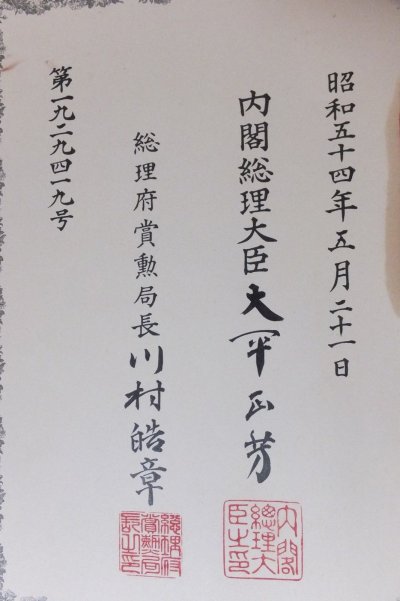 昭和五十四年五月二十一日
内閣総理大臣大平正芳
内閣総理大臣之印
総理府賞勲局長川村皓章
総理府賞勲局長之印
第一九二九四一九号